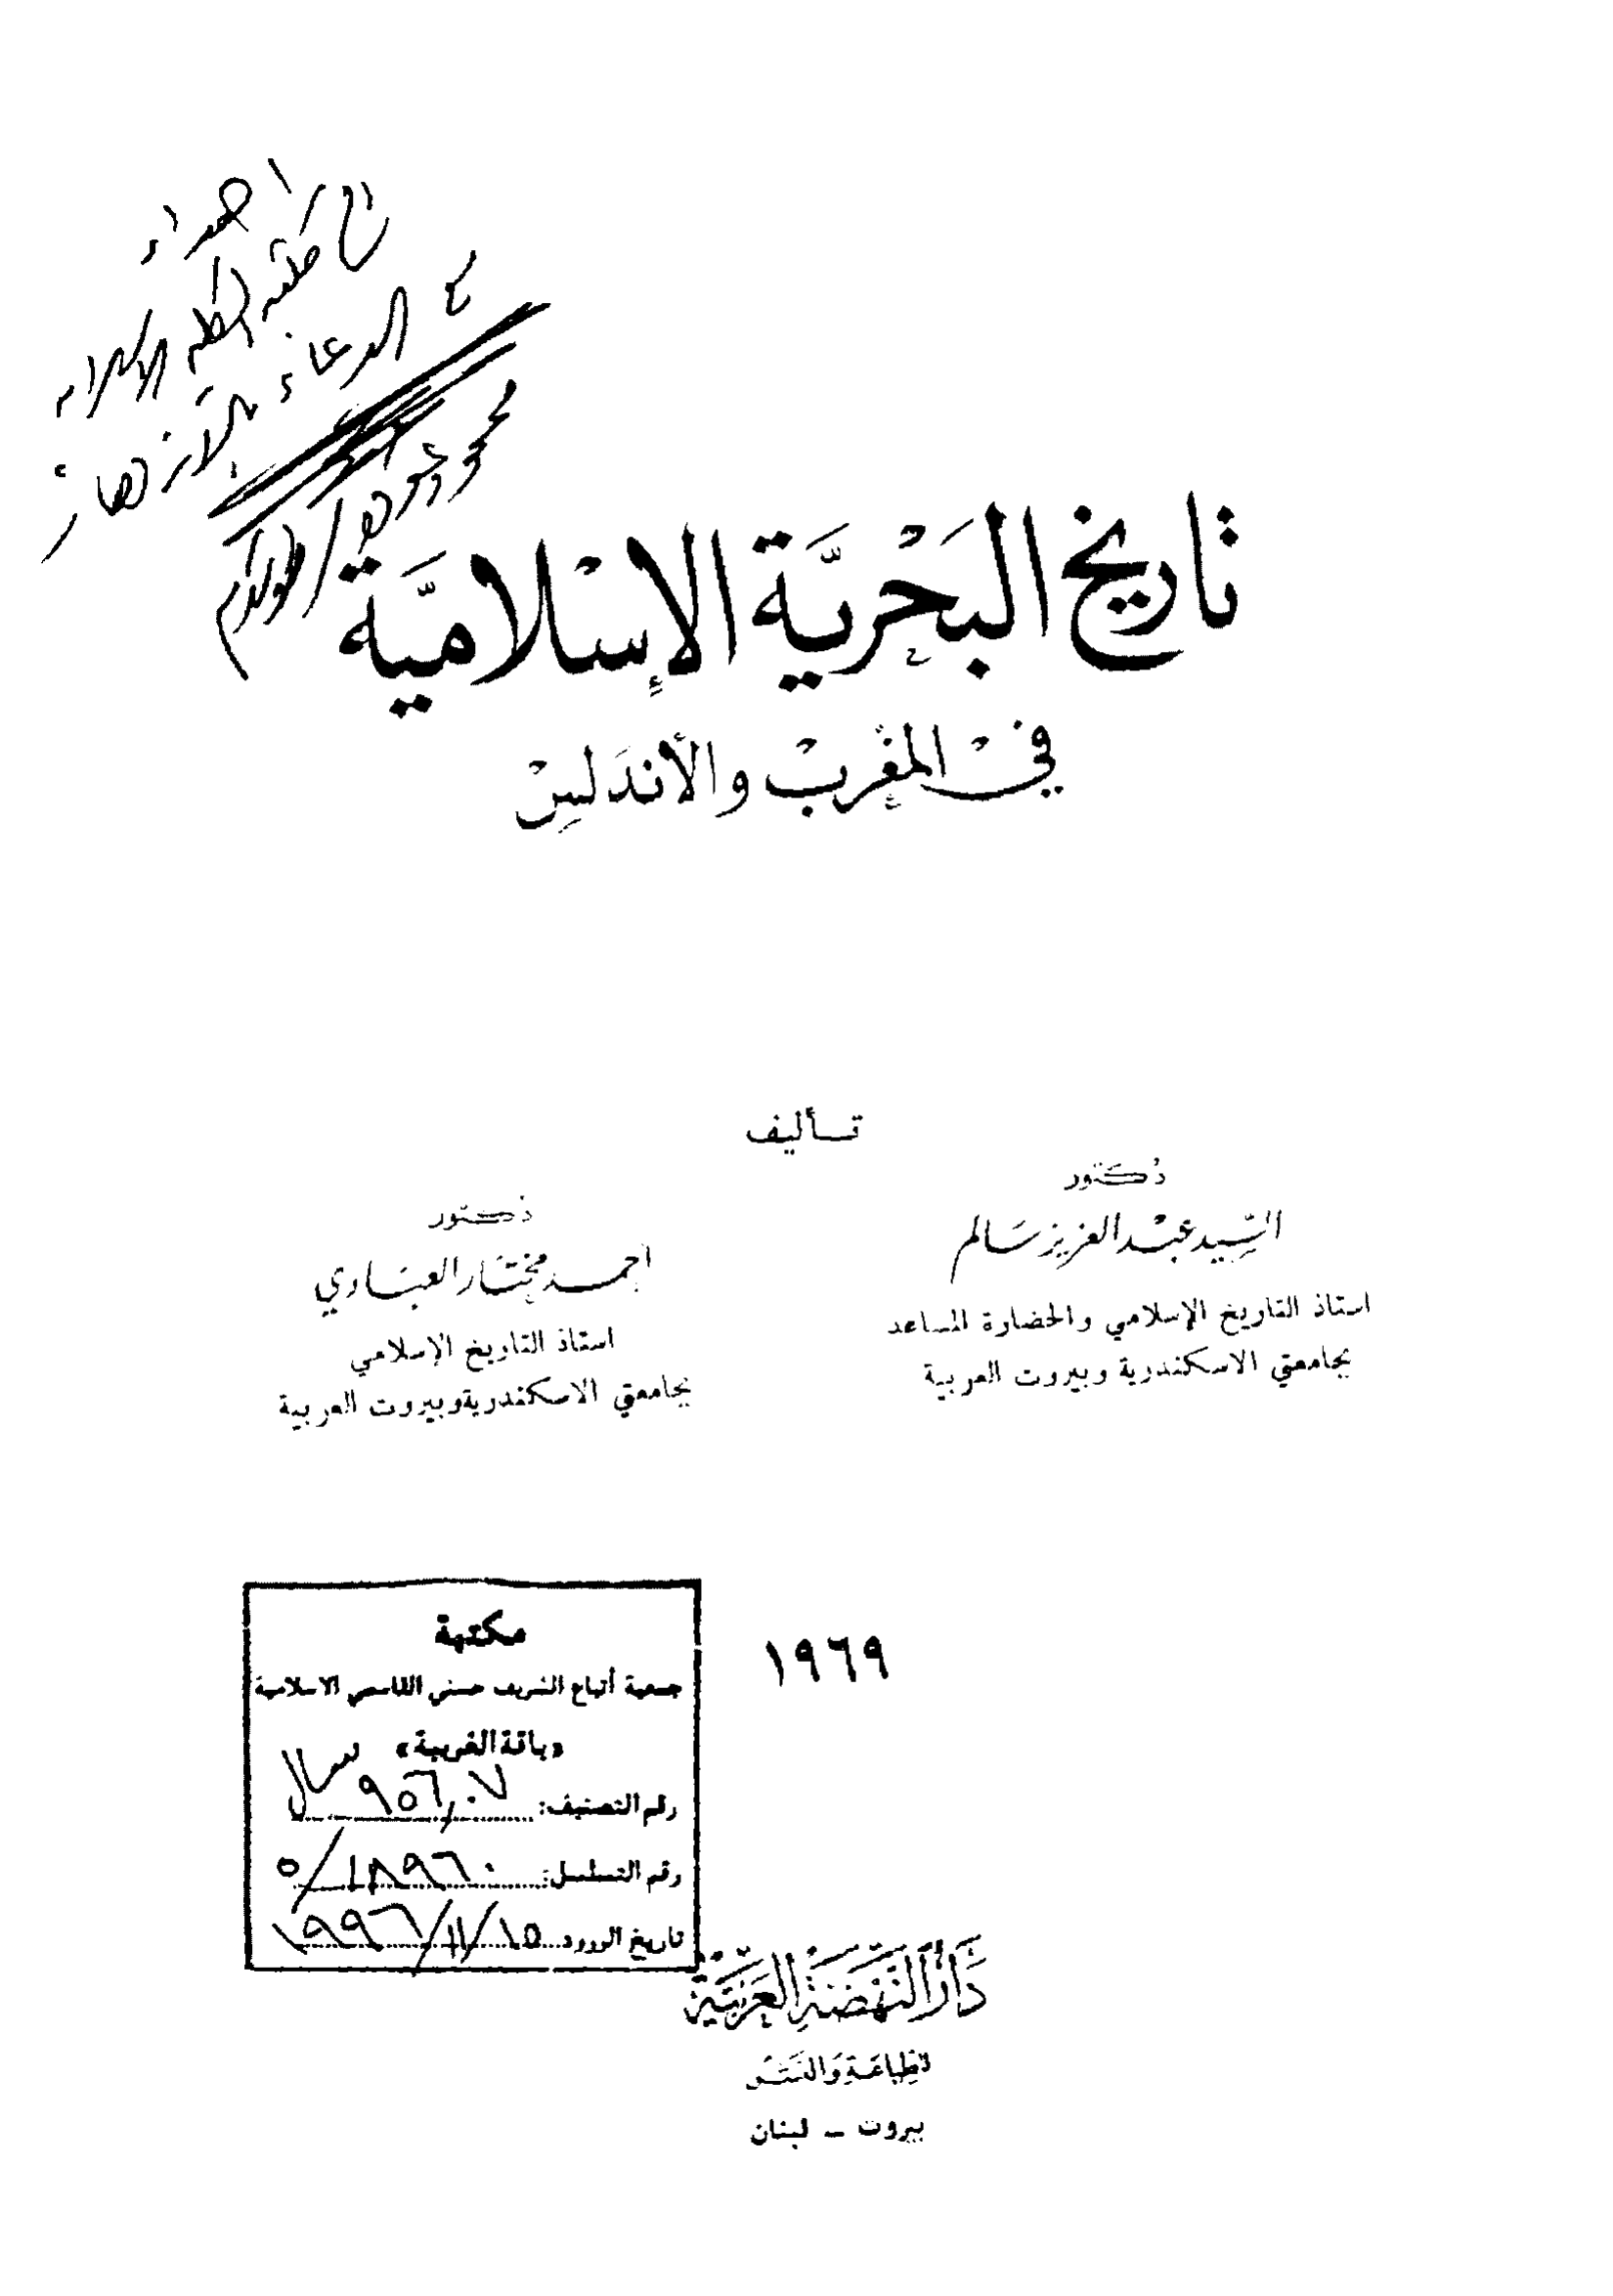 اهداء
مع الدعاء بالازدهار
تاريخ البَحْريَّة الإسْلاميَّة
في المغرب والأندَلسِ
تأليف
دكتور
السَّيد عبد العزيز سَالم
استاذ التاريخ الإسلامي والحضارة المساعد
بجامعتي الاسكندرية وبيروت العربية
دكتور
احمد مختار العبَادي
استاذ التاريخ الإسلامي
بجامعتي الاسكندرية وبيروت العربية
١٩٦٩
مكتبة
جمعية أتباع الشريف حسني القاسمي الاسلامية
«باقة الغربية»
رقم التصنيف: ٩٥٦,٠٧ سال
رقم التسلسل: ١٨٩٦٠/٥
تاريخ الورود ١٥/١١/١٩٩٦
دَارُ النَّهضَةِ العَرَبيَّة
للطِباعَة وَالنشر
بيروت - لبنان